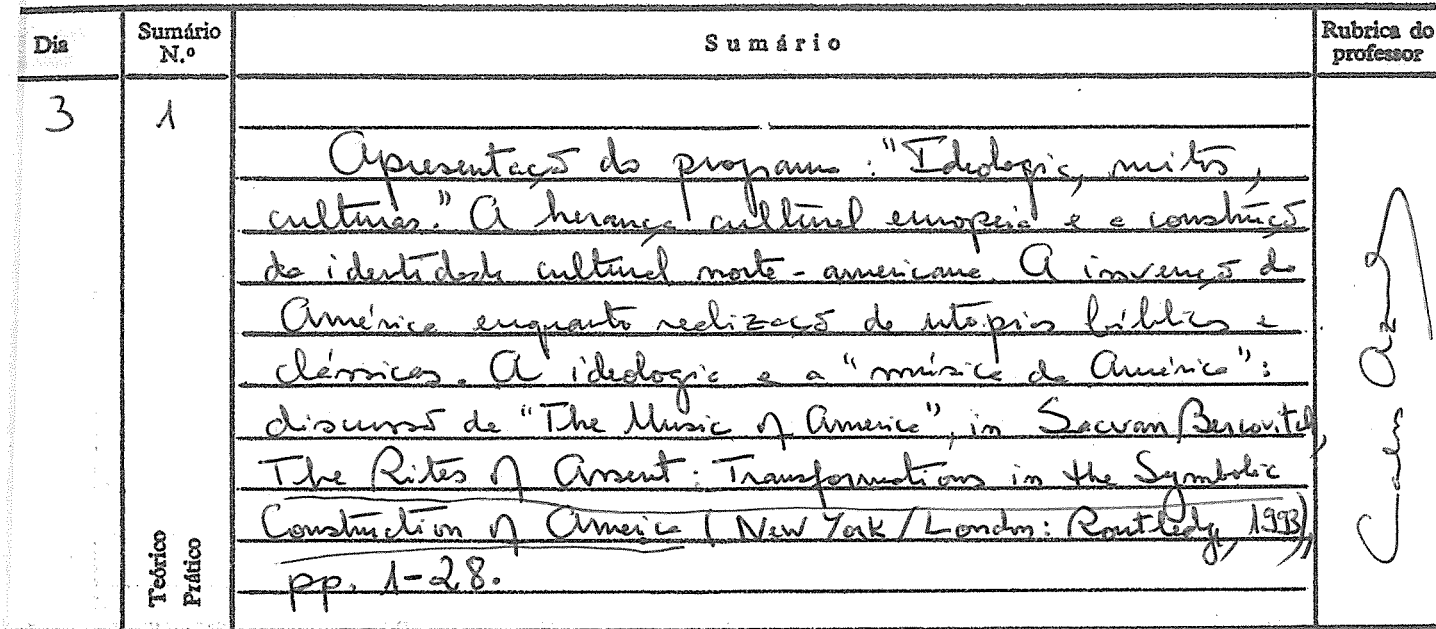 Dia
Sumário N.º
Sumário
Rubrica do professor
3
1
Teórico
Prático
Apresentação do programa: "Ideologia, mitos,
culturas." A herança cultural europeia e a construção
da identidade cultural norte-americana. A invenção da
América enquanto realização de utopias bíblicas e
clássicas. A ideologia e a "música da América":
discussão de "The Music of America", in Sacvan Bercovitch,
The Rites of Assent: Transformations in the Symbolic
Construction of America (New York/London: Routledge, 1993),
pp. 1-28.